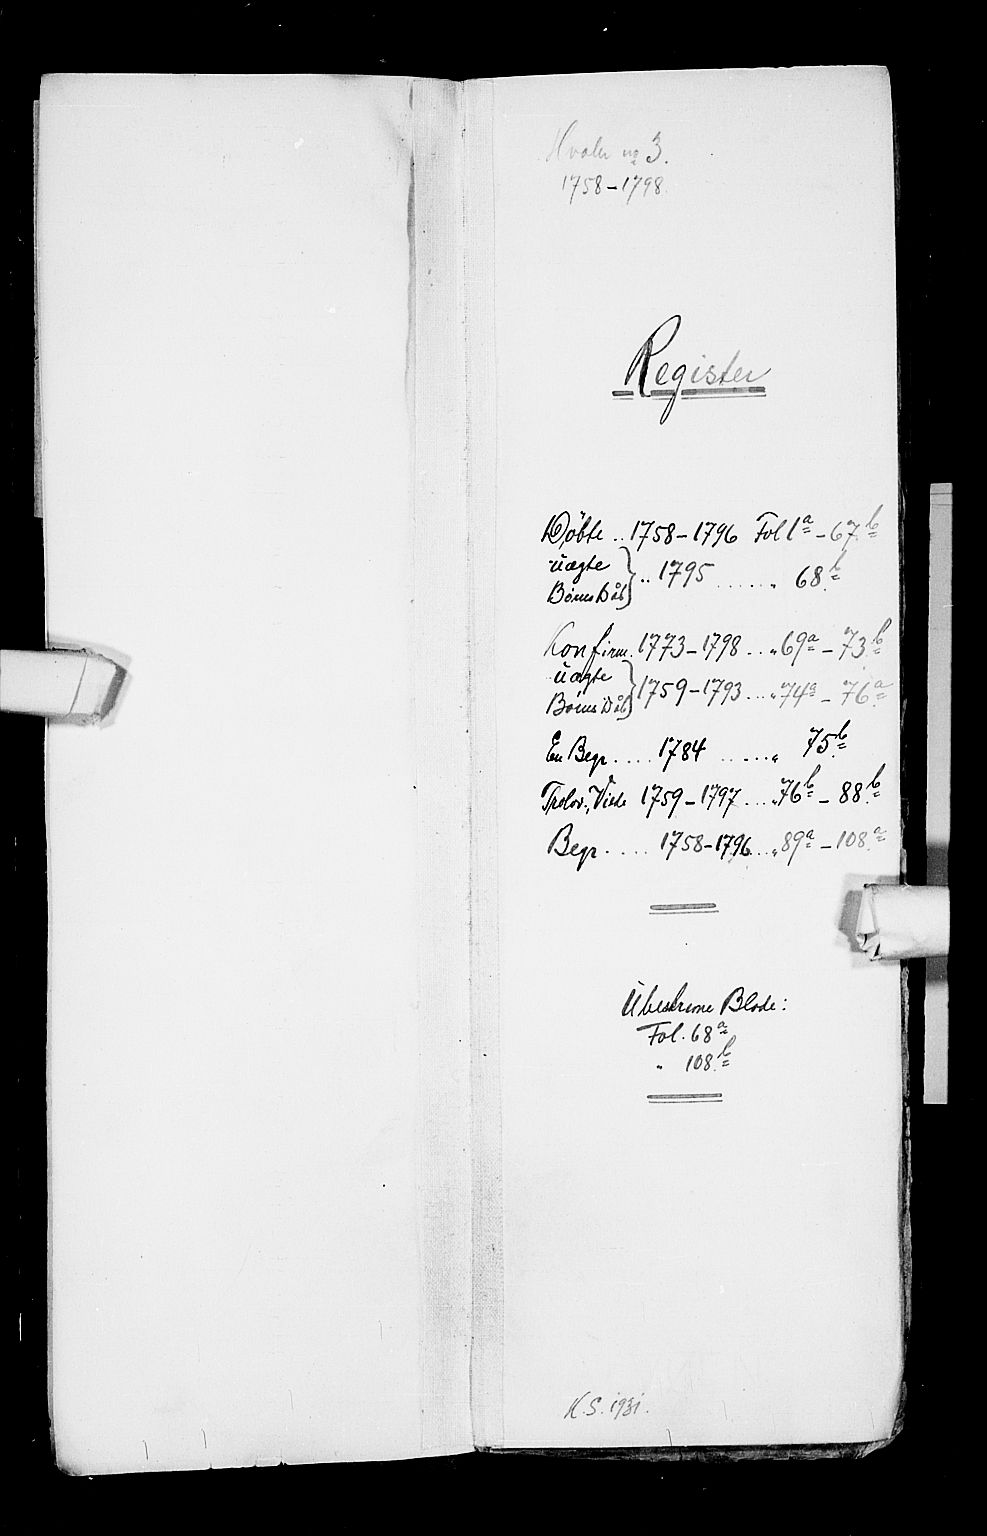 Hvaler no 3.
1758-1798.
Register
Döbte .. 1758-1796 Fol 1a - 67b
Uægte
Børns Dåb } .. 1795 ....... „ 68b
Konfirm. 1773-1798 ... „ 69a - 73b
Uægte
Børns Dåb } 1759-1793 ... „ 74a - 76a
En Begr. .... 1784 ...... „ 75b
Trolov., Viede 1759-1797 .... „ 76b - 88b
Begr. .... 1758-1796 ... „ 89a - 108a
Ubeskrevne Blade:
Fol. 68a
„ 108b
K.S. 1931.